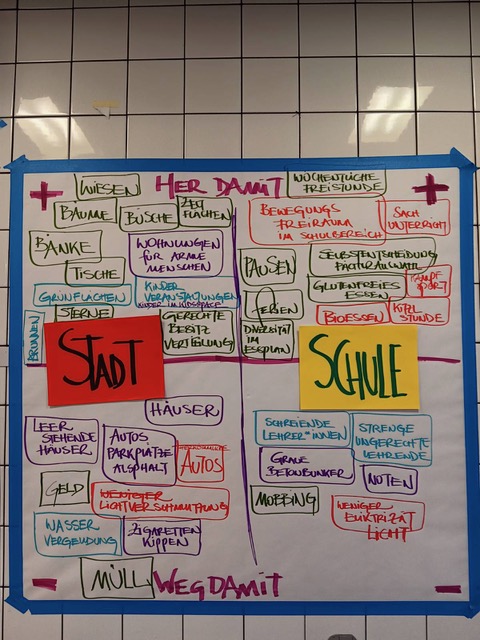 +
HER DAMIT
+
WIESEN
BÄUME
BÜSCHE
FLÄCHEN
BÄNKE
TISCHE
WOHNUNGEN
FÜR ARME
MENSCHEN
GRÜNFLÄCHEN
KINDER
VERANSTALTUNGEN
STERNE
BRUNNEN
GERECHTE
BESITZ
VERTEILUNG
STADT
WÖCHENTLICHE
FREISTUNDE
BEWEGUNGS
FREIRAUM
IM SCHULBEREICH
SACH
UNTERRICHT
PAUSEN
SELBSTENTSCHEIDUNG
FACHAUSWAHL
GLUTENFREIES
ESSEN
KAMPF
SPORT
FERIEN
BIOESSEN
STUNDE
DIVERSITÄT
IM
ESSPLAN
SCHULE
HÄUSER
LEER
STEHENDE
HÄUSER
AUTOS
PARKPLÄTZE
ASPHALT
AUTOS
GELD
WENIGER
LICHTVERSCHMUTZUNG
WASSER
VERGEUDUNG
ZIGARETTEN
KIPPEN
MÜLL
SCHREIENDE
LEHRER*INNEN
STRENGE
UNGERECHTE
LEHRENDE
GRAUE
BETONBUNKER
NOTEN
MOBBING
WENIGER
ELEKTRIZITÄT
LICHT
-
WEG DAMIT
-